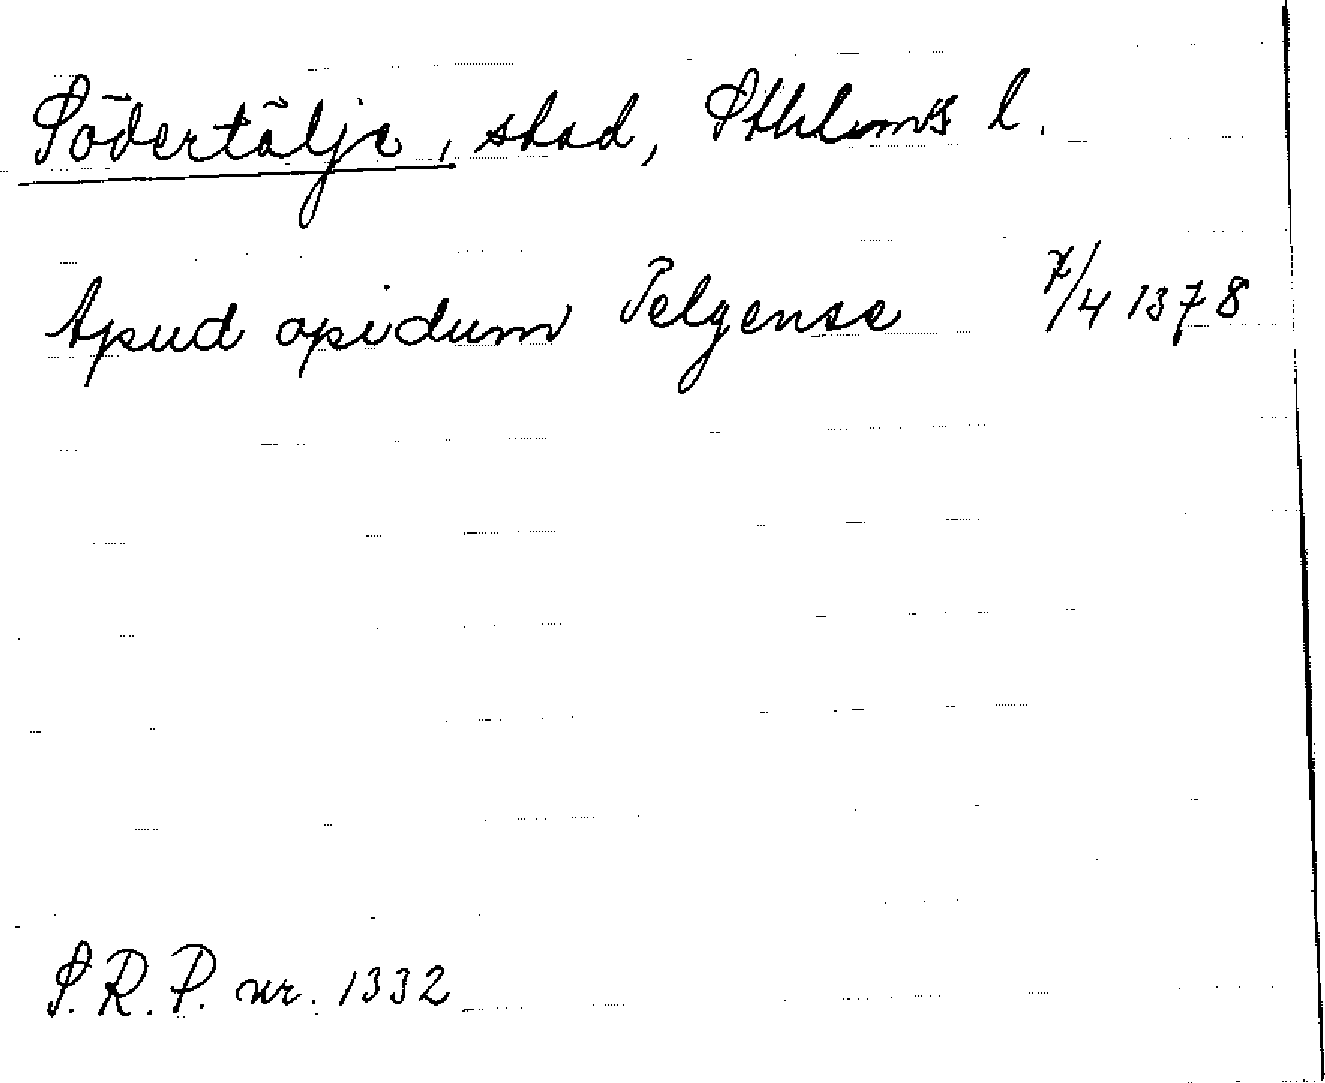 Södertälje, stad, Sthlms l.
Apud opidum Telgense 7/4 1378
S.R.P. nr. 1332